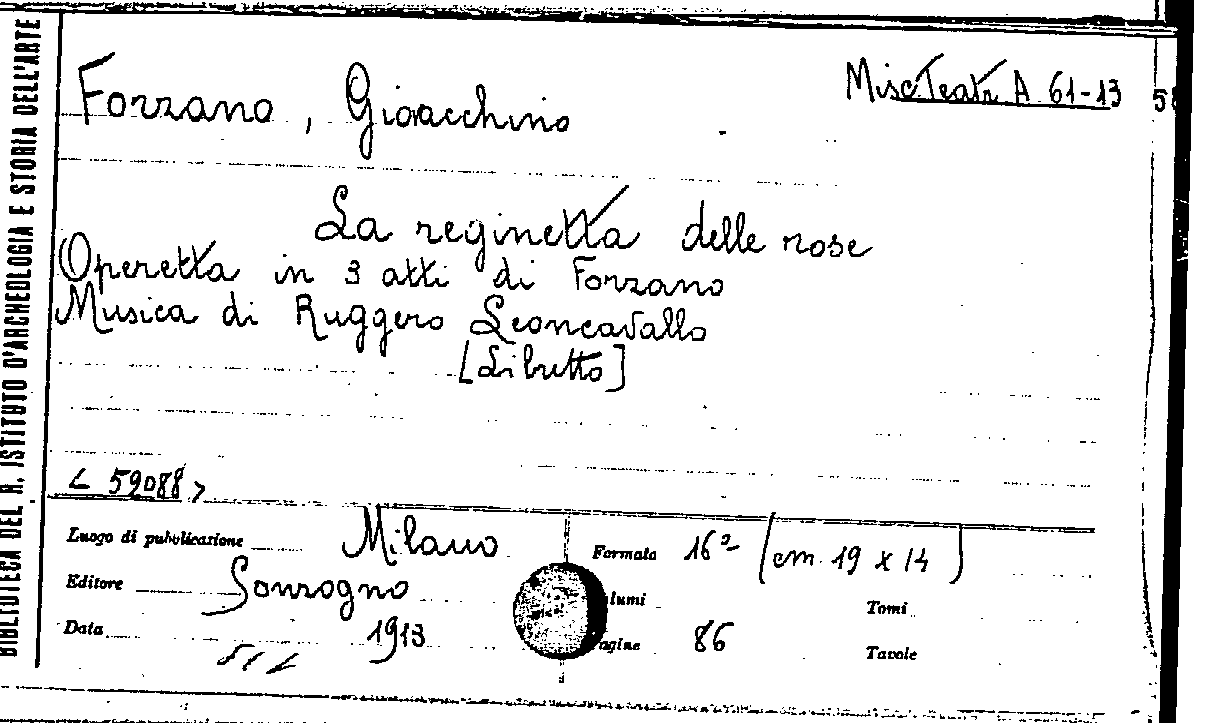 BIBLIOTECA DEL R. ISTITUTO D'ARCHEOLOGIA E STORIA DELL'ARTE
Forzano, Gioacchino
Misc. Teatr. A 61-13
La reginetta delle rose
Operetta in 3 atti di Forzano
Musica di Ruggero Leoncavallo
[Libretto]
< 59088 >
Luogo di pubblicazione Milano
Editore Sonzogno
Data 1913
Formato 16º (cm. 19 x 14)
lumi
Tomi
agine 86
Tavole